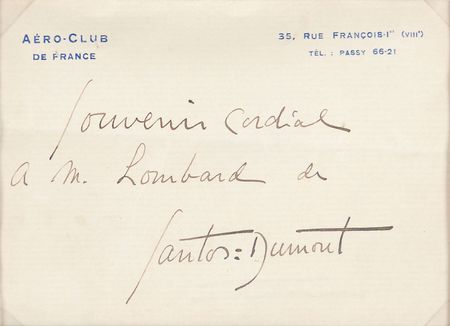 AÉRO-CLUB
DE FRANCE
35, RUE FRANÇOIS-Iᵉʳ (VIIIᵉ)
TÉL. : PASSY 66-21
Souvenir Cordial
a M. Lombard de
Santos=Dumont